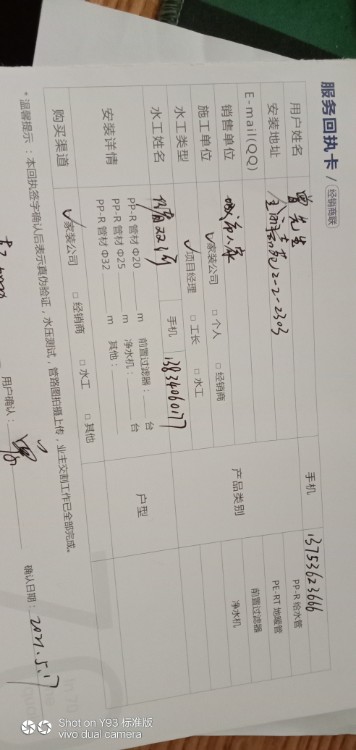 服务回执卡 / 经销商联
用户姓名 曾先生 手机 13753623666
安装地址 2-2-2303
E-mail(QQ)
销售单位 产品类别 PP-R 给水管 PE-RT 地暖管 前置过滤器 净水机
施工单位 ✓家装公司 □ 个人 □ 经销商
水工类型 ✓项目经理 □ 工长 □ 水工
水工姓名 手机 13834060177 户型
安装详情 PP-R 管材 Φ20 m 前置过滤器: 台
PP-R 管材 Φ25 m 净水机: 台
PP-R 管材 Φ32 m 其他:
购买渠道 ✓家装公司 □ 经销商 □ 水工 □ 其他
*温馨提示:本回执签字确认后表示真伪验证,水压测试,管路图拍摄上传,业主交割工作已全部完成。
用户确认: 确认日期: 2021.5.17
Shot on Y93 标准版
vivo dual camera